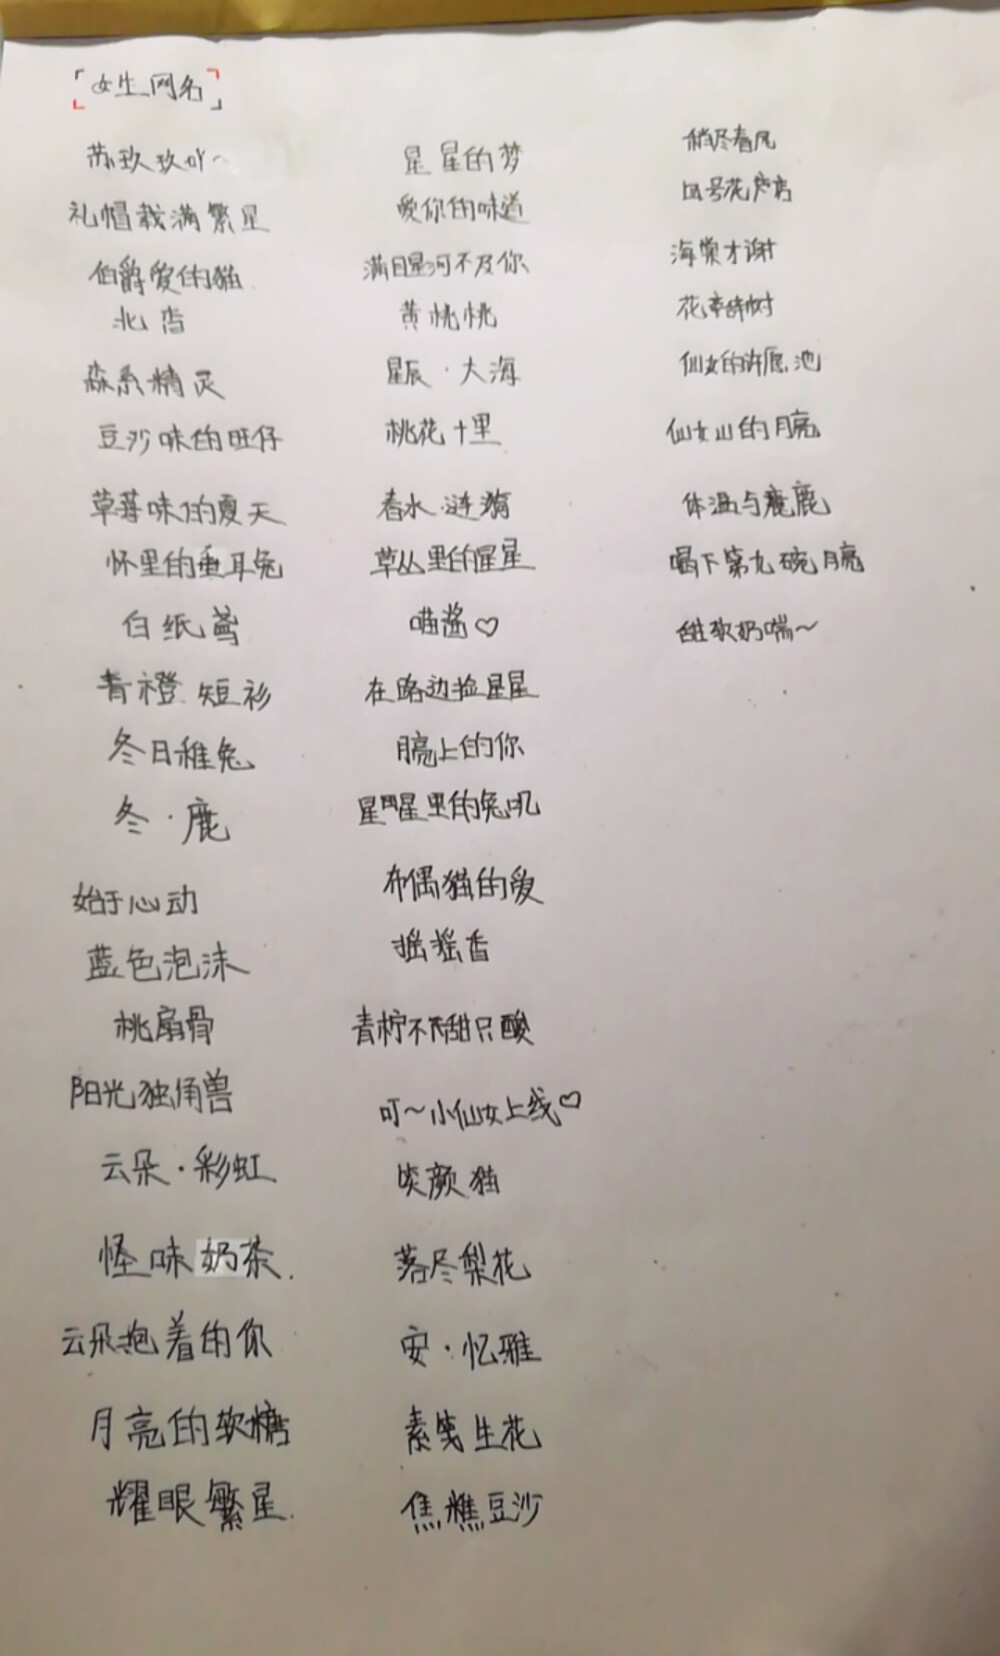 「女生网名」
苏玖玖吖~
礼帽栽满繁星
伯爵爱的猫
北杳
森系精灵
豆沙味的旺仔
草莓味的夏天
怀里的垂耳兔
白纸鸢
青橙短衫
冬日稚兔
冬·鹿
始于心动
蓝色泡沫
桃扇骨
阳光独角兽
云朵·彩虹
怪味奶茶
云朵抱着的你
月亮的软糖
耀眼繁星
星星的梦
爱你的味道
满目星河不及你
黄桃桃
星辰·大海
桃花十里
春水·涟漪
草丛里的星星
喵酱♡
在路边捡星星
月亮上的你
星星里的兔叽
布偶猫的爱
摇摇香
青柠不甜只酸
叮~小仙女上线♡
笑颜猫
落尽梨花
安·忆雅
素笺生花
焦糖豆沙
稍尽春风
四号花店
海棠才谢
花幸辞树
仙女的许愿池
仙女山的月亮
体温与鹿
喝下第九碗月亮
甜软奶喘~